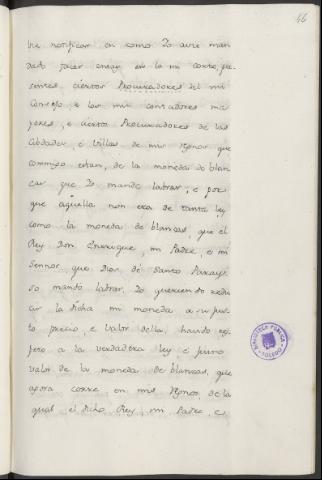 46
bre notificar os como Io avie man
dado facer ensay en la mi corte, pre
sentes ciertos Procuradores del mi
Consejo, e los mis contadores ma
yores, e ciertos Procuradores de las
Cibdades, e villas de mis Regnos que
conmigo estan, de la moneda de blan
cas que Io mandé labrar, e por
que aquella non era de tanta ley
como la moneda de blancas, que el
Rey Don Enrrique, mi Padre, e mi
Sennor, que Dios dé Santo Paray
so mandó labrar, Io queriendo redu
cir la dicha mi moneda a su jus
to precio, e valor della, habido res
peto a la verdadera ley e puro
valor de la moneda de blancas, que
agora corre en mis Regnos, de la
qual el dicho Rey, mi Padre, e
BIBLIOTECA PUBLICA
TOLEDO